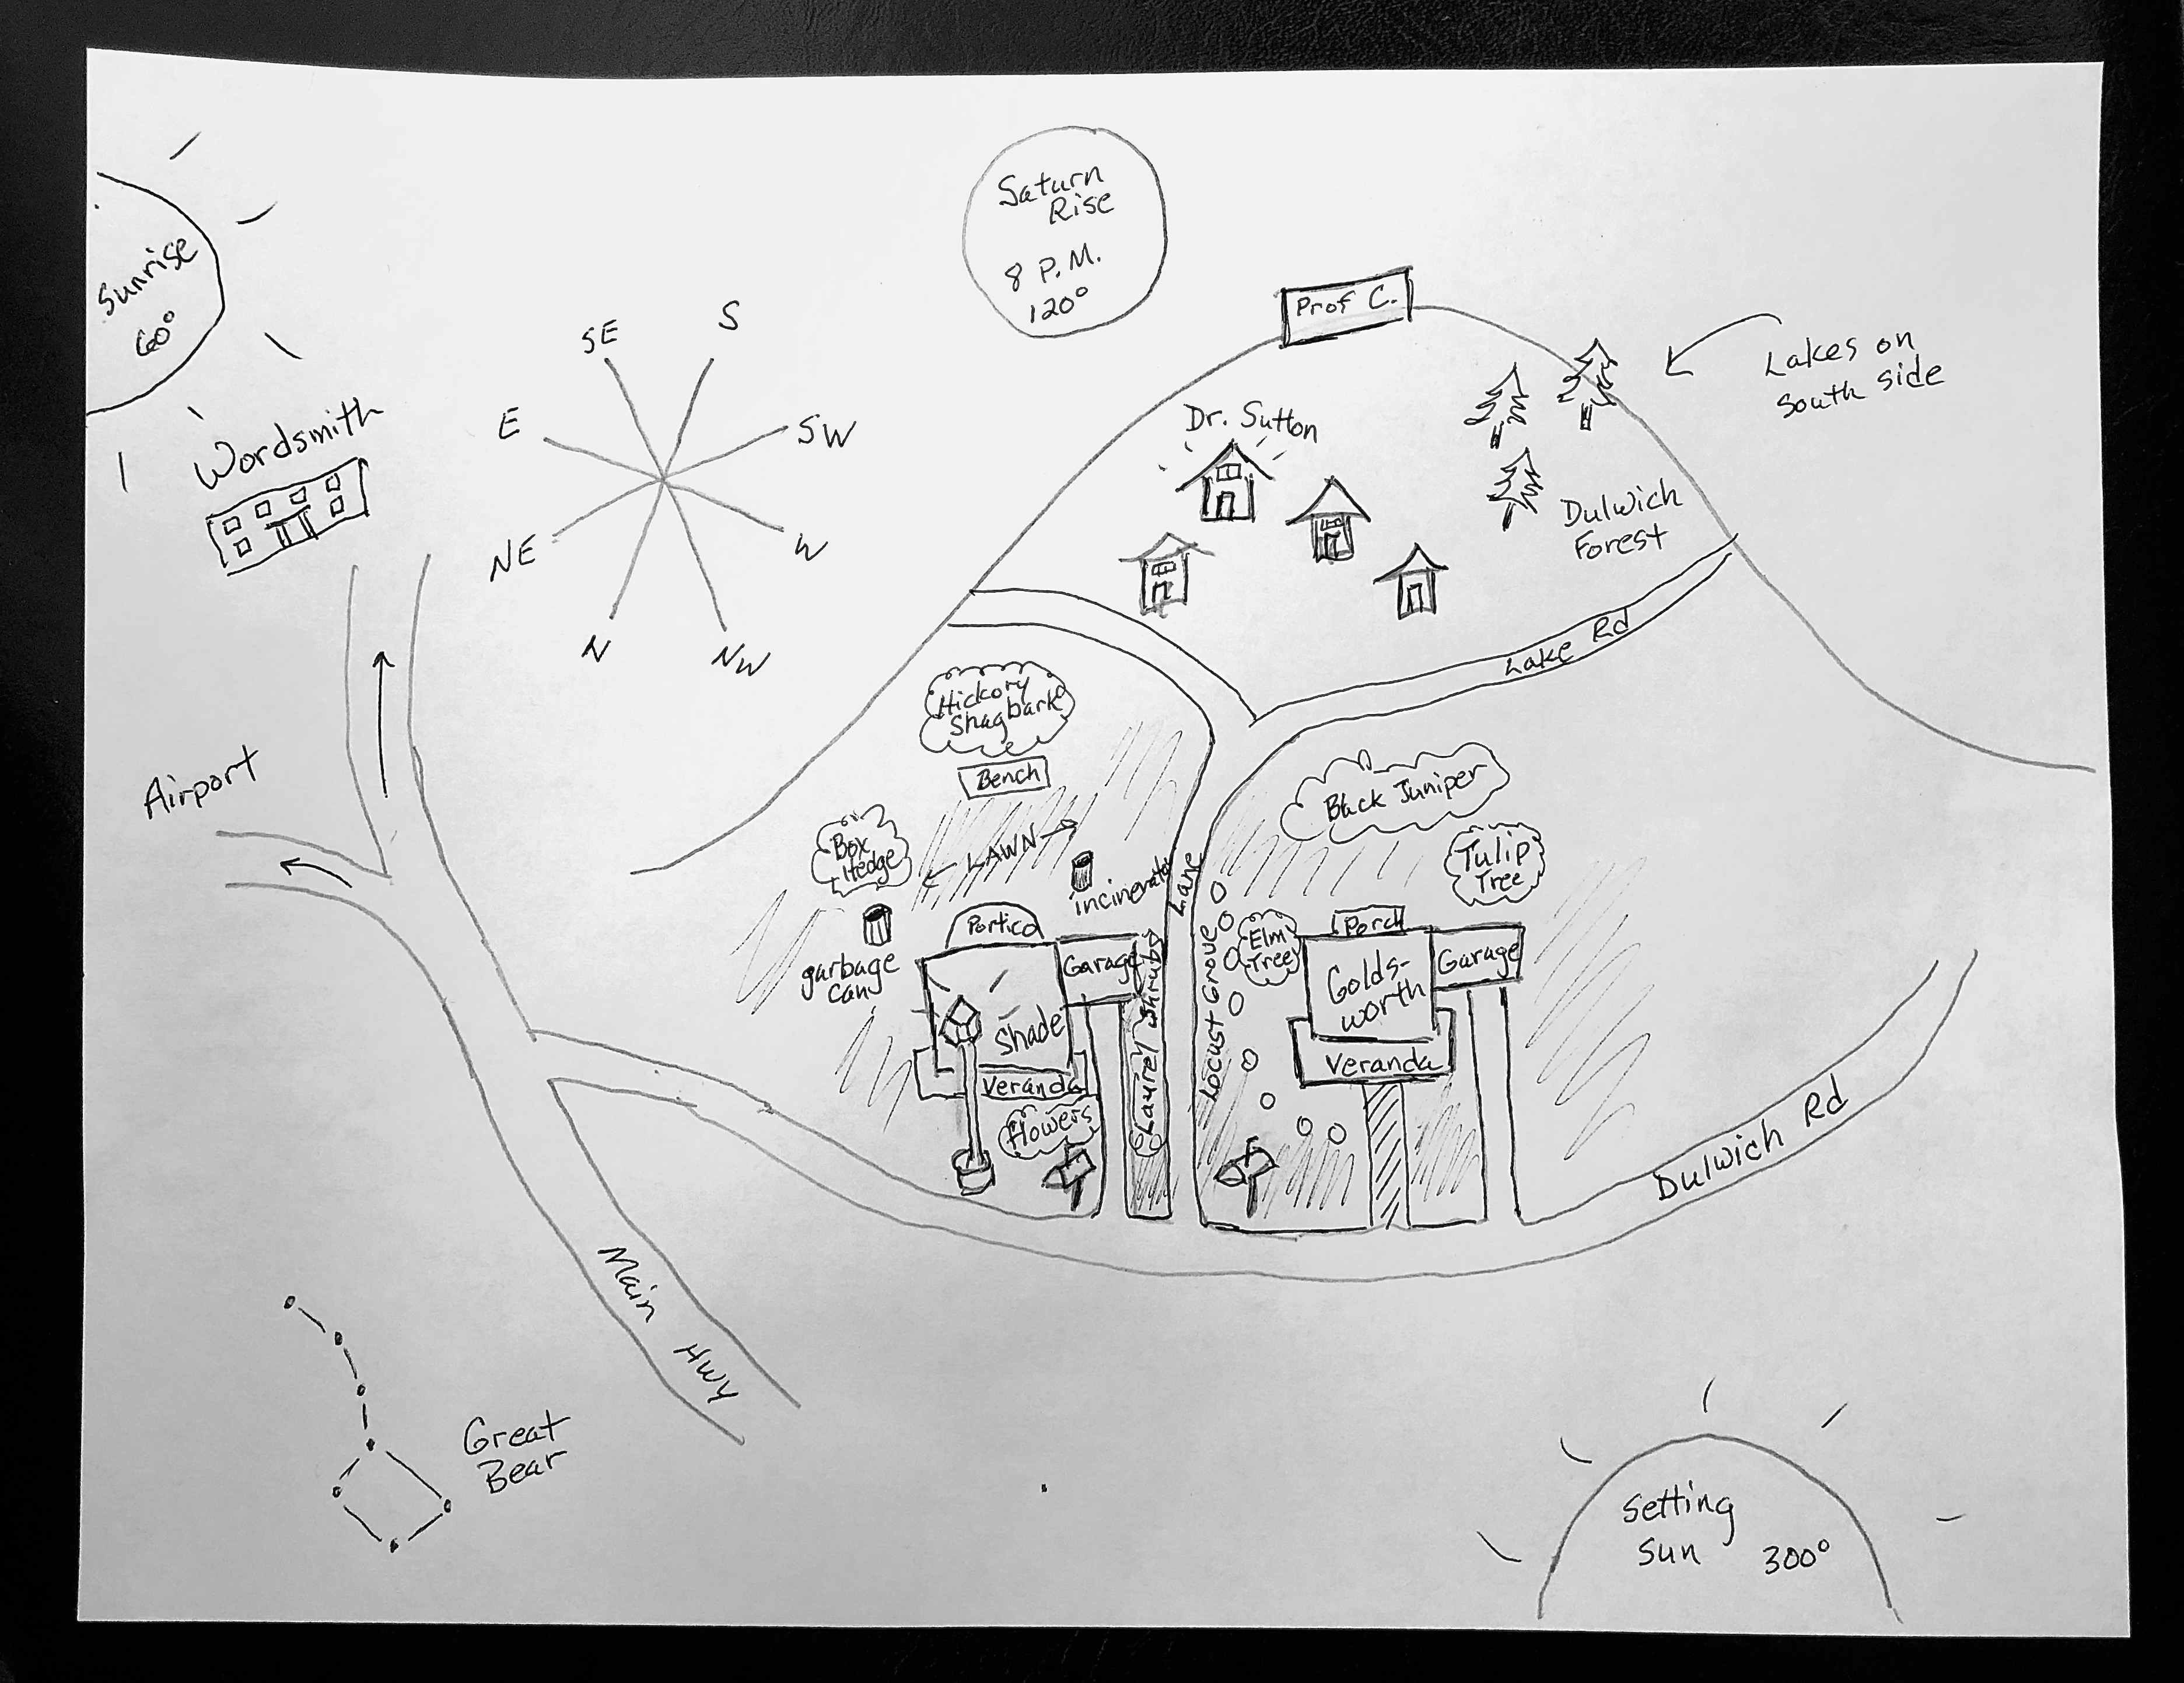 Saturn
Rise
8 P.M.
120°
Sunrise
60°
Prof C.
SE
S
E
SW
NE
W
N
NW
Lakes on
South side
Wordsmith
Dr. Sutton
Dulwich
Forest
Lake Rd
Hickory
Shagbark
Bench
Airport
Black Juniper
Box
Hedge
LAWN
Tulip
Tree
incinerator
Lane
Portico
Porch
garbage
can
Garage
Laurel Shrubs
Locust Grove
Elm
Tree
Golds-
worth
Garage
Shade
Veranda
Veranda
flowers
Dulwich Rd
Main Hwy
Great
Bear
Setting
Sun
300°